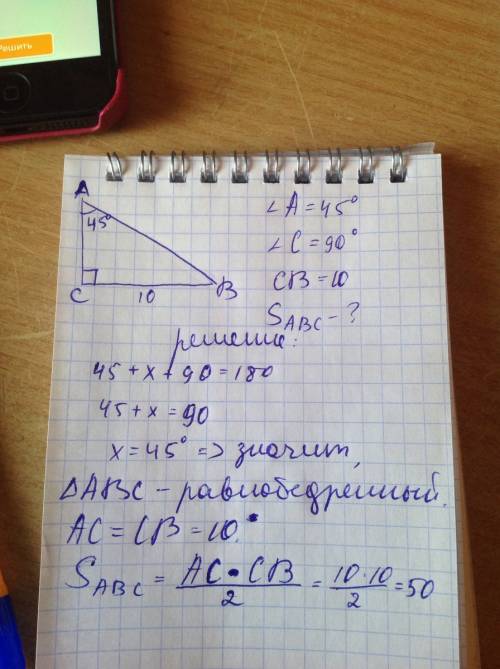 Решить
A
45°
C
10
B
∠A = 45°
∠C = 90°
CB = 10
S_ABC - ?
решение:
45 + x + 90 = 180
45 + x = 90
x = 45° => значит,
△ABC - равнобедренный.
AC = CB = 10.
S_ABC = AC · CB / 2 = 10 · 10 / 2 = 50